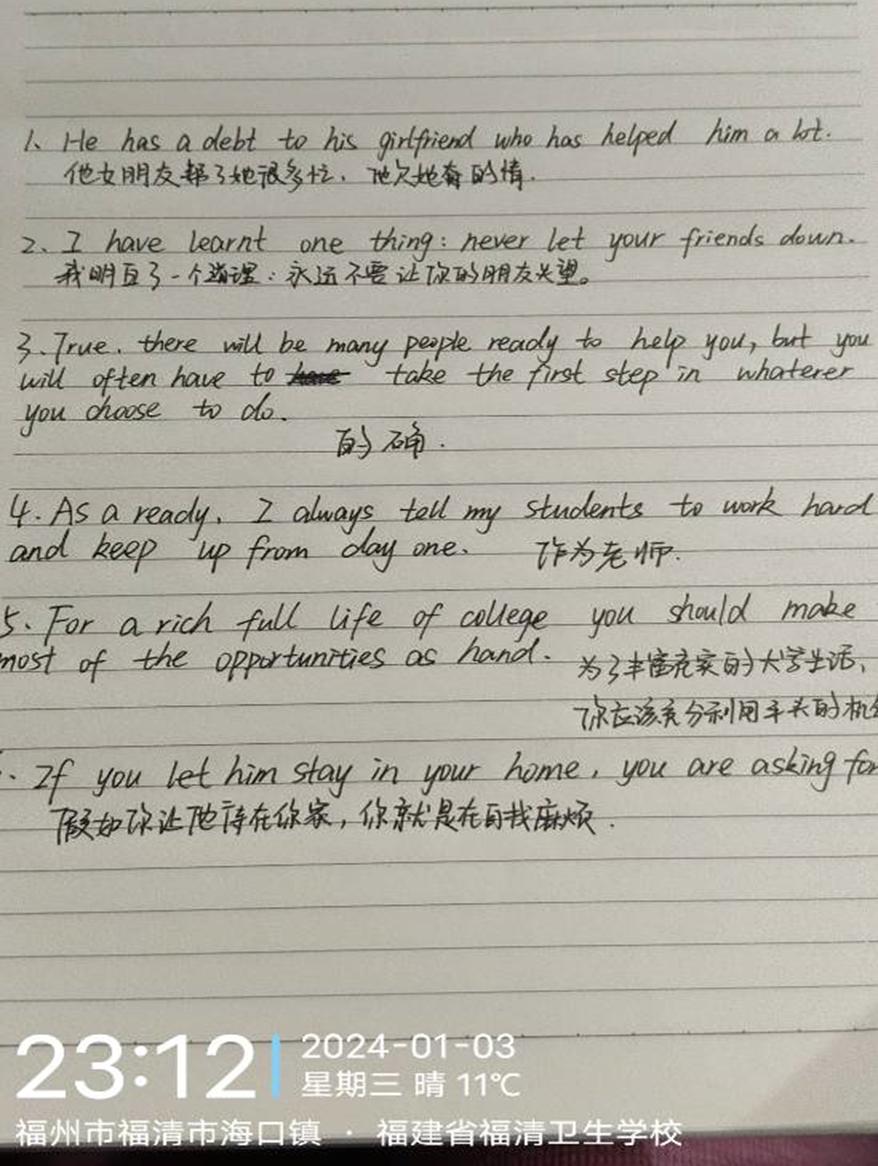 1、He has a debt to his girlfriend who has helped him a lot.
他女朋友帮了她很多忙、他欠她的情.
2、I have learnt one thing: never let your friends down.
我明白了一个道理：永远不要让你的朋友失望。
3、True. there will be many people ready to help you, but you
will often have to take the first step in whaterer
you choose to do.
的确.
4. As a ready, I always tell my students to work hard
and keep up from day one. 作为老师.
5、For a rich full life of college you should make
most of the opportunities as hand. 为了丰富充实的大学生活、
你应该充分利用手头的机会
If you let him stay in your home, you are asking for
假如你让他待在你家，你就是在自找麻烦.
23:12
2024-01-03
星期三 晴 11℃
福州市福清市海口镇 · 福建省福清卫生学校